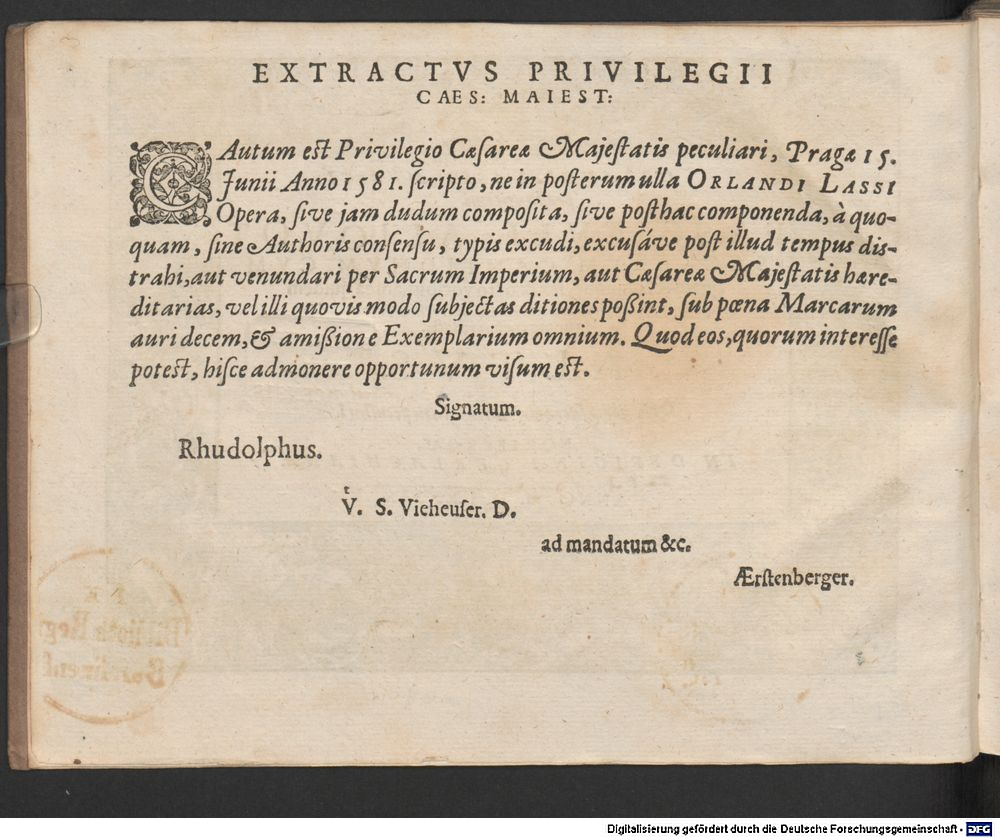 EXTRACTVS PRIVILEGII
CAES: MAIEST:
CAutum est Privilegio Cæsareæ Majestatis peculiari, Pragæ 15.
Junii Anno 1581. scripto, ne in posterum ulla ORLANDI LASSI
Opera, sive jam dudum composita, sive posthac componenda, à quo-
quam, sine Authoris consensu, typis excudi, excusáve post illud tempus dis-
trahi, aut venundari per Sacrum Imperium, aut Cæsareæ Majestatis hære-
ditarias, vel illi quovis modo subjectas ditiones poßint, sub pœna Marcarum
auri decem, & amißione Exemplarium omnium. Quod eos, quorum interesse
potest, hisce admonere opportunum visum est.
Signatum.
Rhudolphus.
Vͭ. S. Vieheuser. D.
ad mandatum &c.
Ærstenberger.
Digitalisierung gefördert durch die Deutsche Forschungsgemeinschaft - DFG